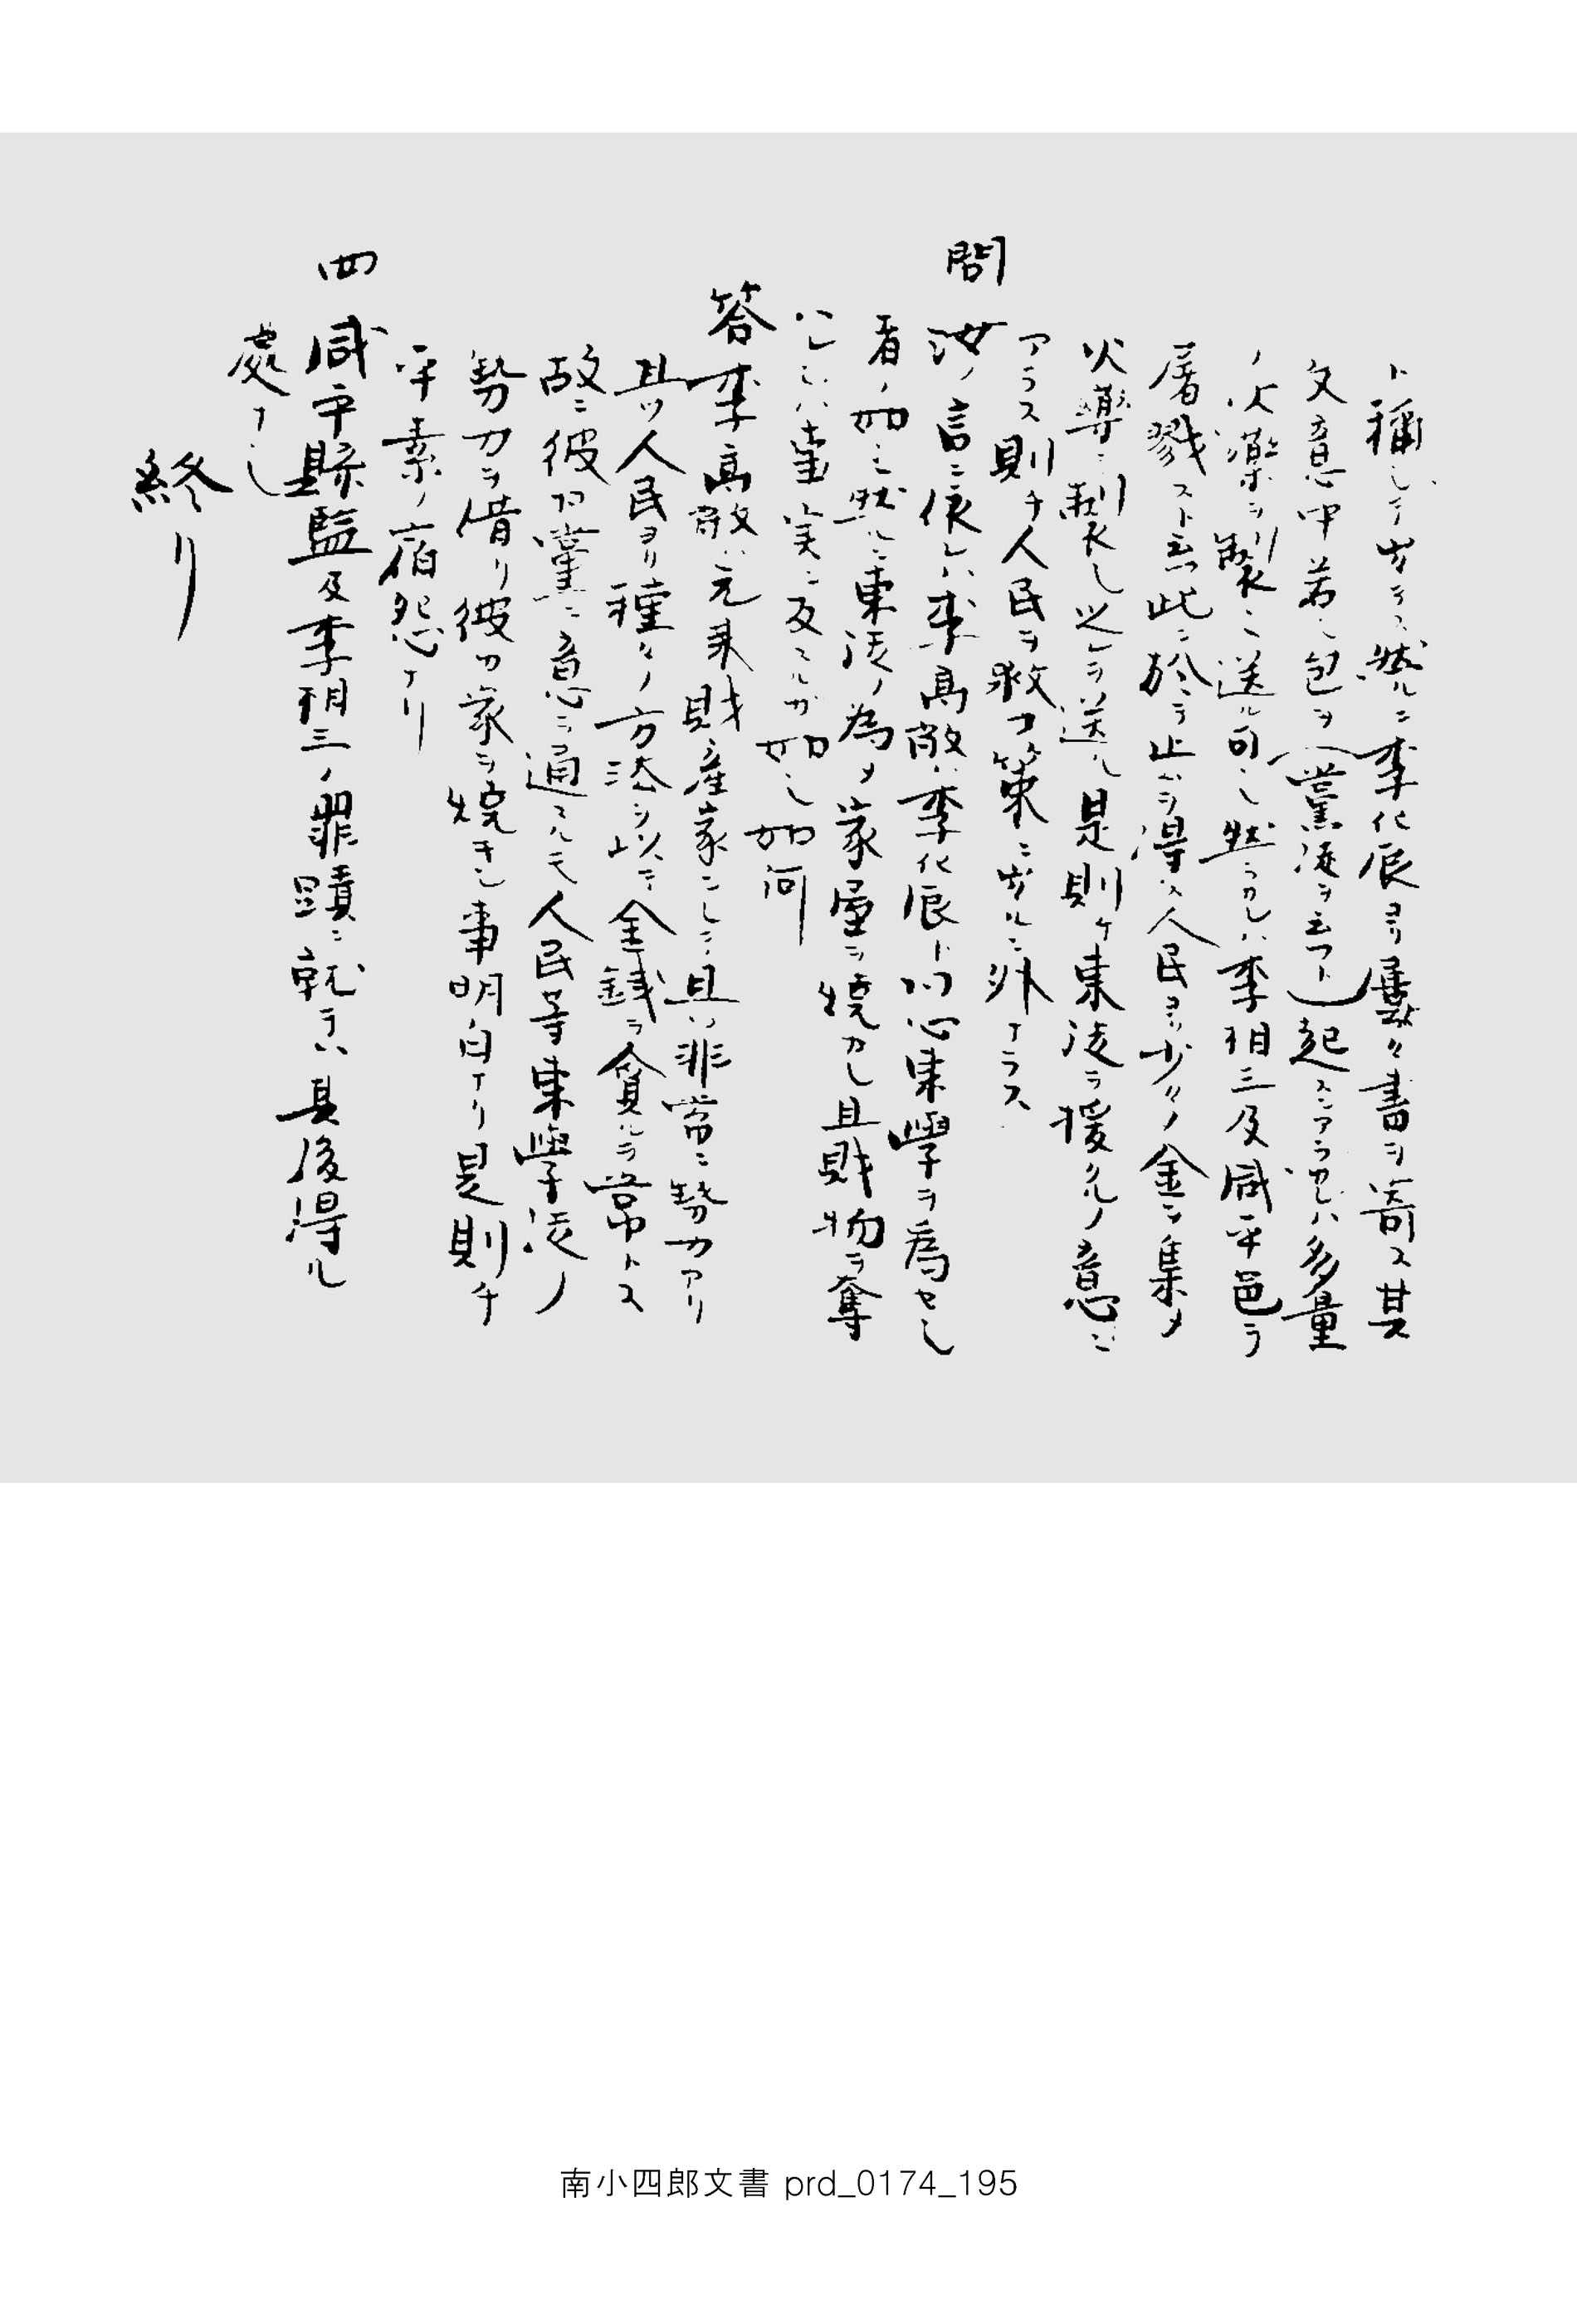 ト稱シテ出テス然ルニ李化辰ヨリ屡々書ヲ寄ス其
文意中若シ包ヲ(黨徒ヲ云フト)起スニアラサレハ多量
ノ火藥ヲ製シ送ル可シ然ラサレハ李相三及咸平邑ヲ
屠戮スト云此ニ於テ止ヲ得ス人民ヨリ少々ノ金ヲ集メ
火藥ヲ製シ之レヲ送ル是則チ東徒ヲ援クルノ意ニ
アラス則チ人民ヲ救フ策ニ出ルニ外ナラス
問 汝ノ言ニ依レハ李高敞ハ李化辰ト同心東學ヲ為セシ
者ノ如シ然ルニ東徒ノ為メ家屋ヲ燒カレ且財物ヲ奪
ハレシハ事実ニ反スルカ如シ如何
答 李高敞ハ元来財産家ニシテ且ツ非常ニ勢力アリ
且ツ人民ヨリ種々ノ方法ヲ以テ金錢ヲ貪ルヲ常トス
故ニ彼カ黨ニ意ヲ通スルモ人民等東學徒ノ
勢力ヲ借リ彼カ家ヲ燒キシ事明白ナリ是則チ
平素ノ宿怨ナリ
四 咸平縣監及李相三ノ罪蹟ニ就テハ其後得ル
處ナシ
終リ
南小四郎文書 prd_0174_195